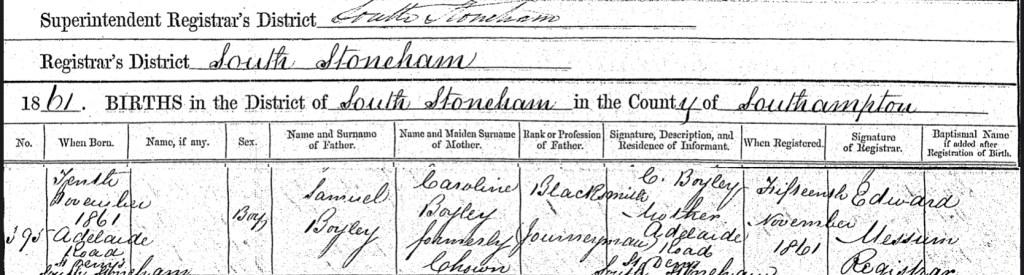 Superintendent Registrar's District South Stoneham
Registrar's District South Stoneham
1861. BIRTHS in the District of South Stoneham in the County of Southampton
No. When Born. Name, if any. Sex. Name and Surname of Father. Name and Maiden Surname of Mother. Rank or Profession of Father. Signature, Description, and Residence of Informant. When Registered. Signature of Registrar. Baptismal Name if added after Registration of Birth.
395
Tenth
November
1861
Adelaide
Road
St Denys
South Stoneham
Boy
Samuel
Boyley
Caroline
Boyley
formerly
Chown
Blacksmith
Journeyman
C. Boyley
Mother
Adelaide
Road
St Denys
South Stoneham
Fifteenth
November
1861
Edward
Messum
Registrar